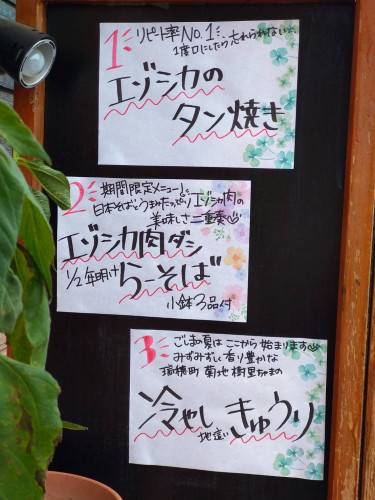 1
リピト率No.1
1度口にしたら忘れられない
エゾシカの
タン焼き
2
期間限定メニュー!
日本そばとうまみたっぷりエゾシカ肉の
美味しさ二重奏
エゾシカ肉ダシ
1/2年明け
らーそば
小鉢3品付
3
ごじまの夏は ここから 始まります
みずみずしく香り豊かな
瑞穂町 菊地 樹里ちゃまの
冷やし きゅうり
地這い